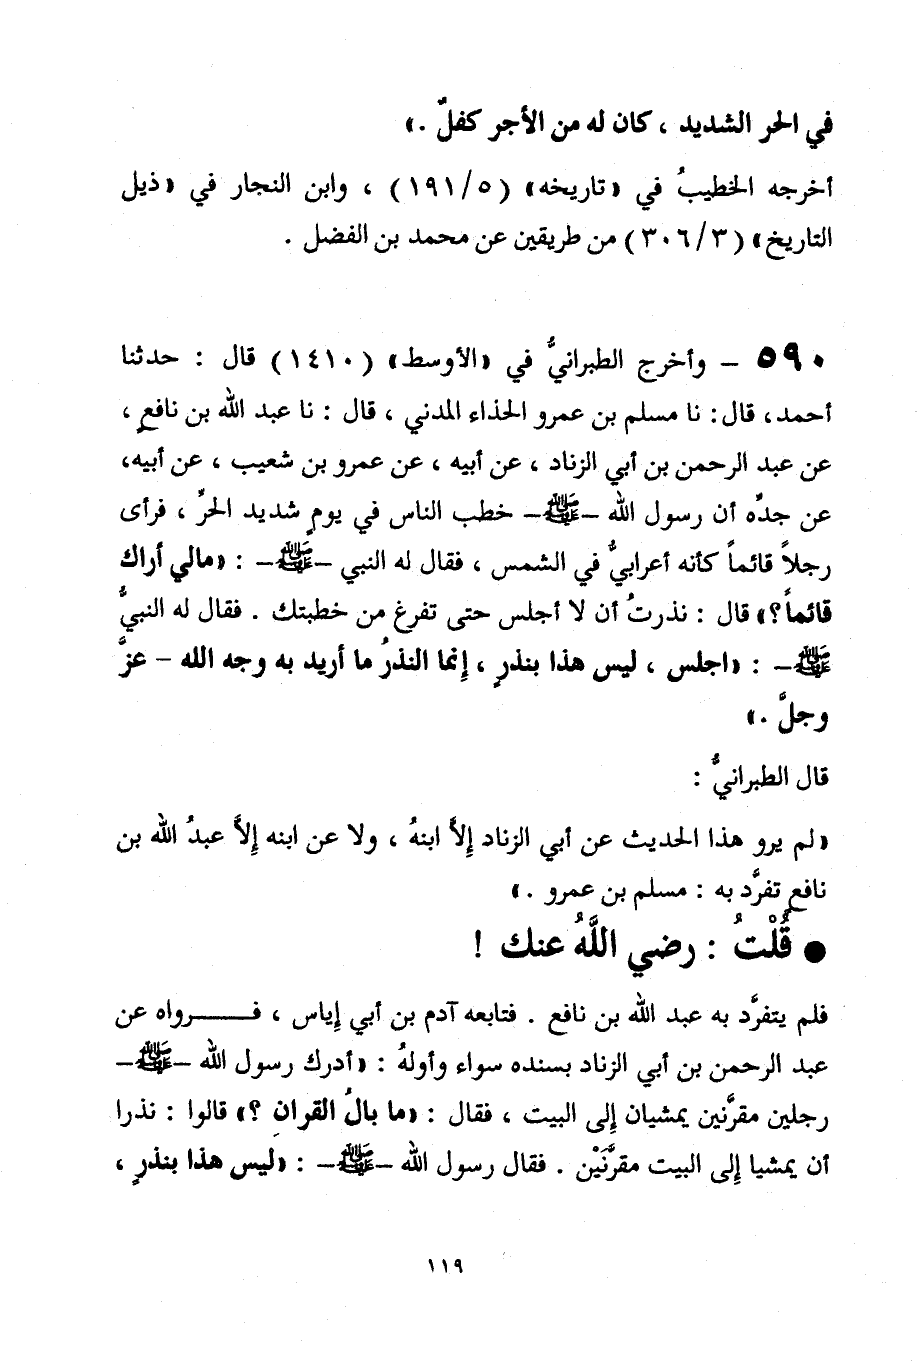 في الحر الشديد ، كان له من الأجر كفلٌ .»
أخرجه الخطيبُ في «تاريخه» (١٩١/٥) ، وابن النجار في «ذيل
التاريخ» (٣٠٦/٣) من طريقين عن محمد بن الفضل .
٥٩٠ – وأخرج الطبرانيُّ في «الأوسط» (١٤١٠) قال : حدثنا
أحمد، قال: نا مسلم بن عمرو الحذاء المدني ، قال : نا عبد الله بن نافعٍ ،
عن عبد الرحمن بن أبي الزناد ، عن أبيه ، عن عمرو بن شعيب ، عن أبيه،
عن جدِّه أن رسول الله –ﷺ– خطب الناس في يومٍ شديد الحرِّ ، فرأى
رجلاً قائماً كأنه أعرابيٌّ في الشمس ، فقال له النبي –ﷺ– : «مالي أراك
قائماً؟» قال : نذرتُ أن لا أجلس حتى تفرغ من خطبتك . فقال له النبيُّ
ﷺ– : «اجلس ، ليس هذا بنذرٍ ، إنما النذرُ ما أريد به وجه الله – عزَّ
وجلَّ .»
قال الطبرانيُّ :
«لم يرو هذا الحديث عن أبي الزناد إلاَّ ابنهُ ، ولا عن ابنه إلاَّ عبدُ الله بن
نافعٍ تفرَّد به : مسلم بن عمرو .»
● قُلْتُ : رضي اللَّهُ عنك !
فلم يتفرَّد به عبد الله بن نافع . فتابعه آدم بن أبي إياس ، فـــــرواه عن
عبد الرحمن بن أبي الزناد بسنده سواء وأولهُ : «أدرك رسول الله –ﷺ–
رجلين مقرَّنين يمشيان إلى البيت ، فقال : «ما بالُ القرانِ ؟» قالوا : نذرا
أن يمشيا إلى البيت مقرَّنَيْن . فقال رسول الله –ﷺ– : «ليس هذا بنذرٍ ،
١١٩